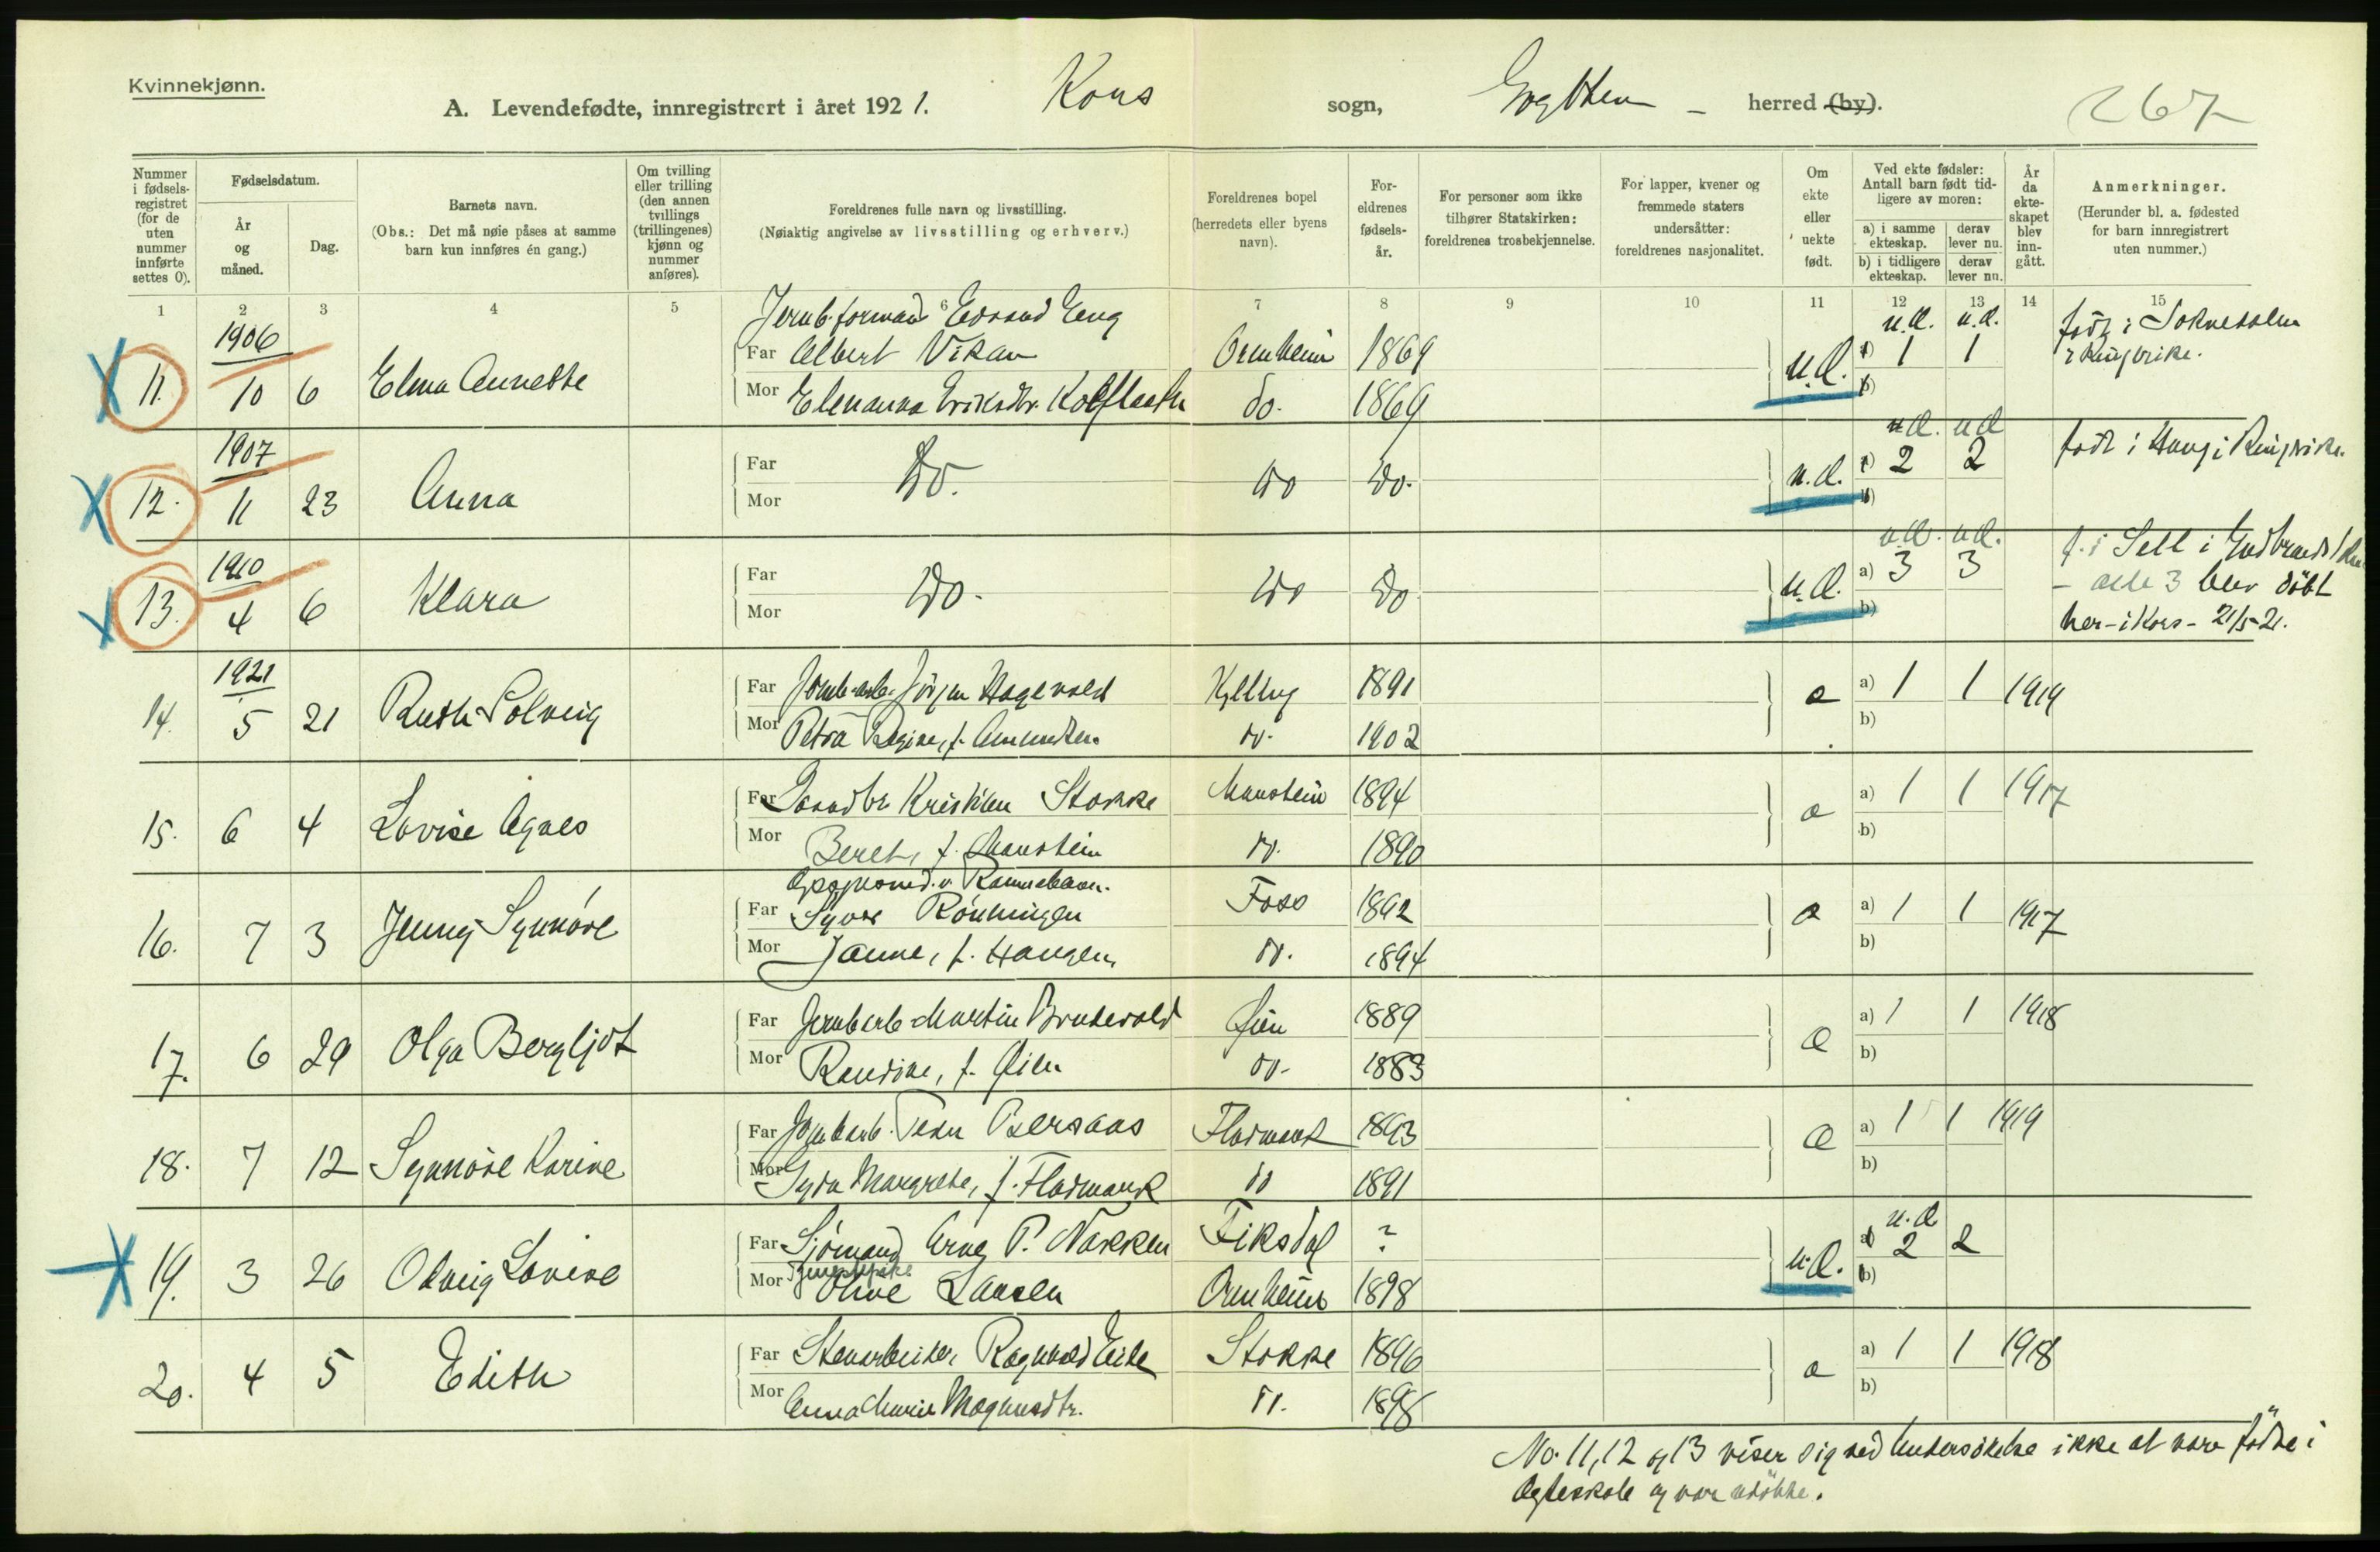 Kvinnekjønn.
A. Levendefødte, innregistrert i året 1921. Kors sogn, Grytten - herred (by).
267
Nummer i fødsels-registret (for de uten nummer innførte settes 0).
Fødselsdatum.
År og måned.
Dag.
Barnets navn.
(Obs.: Det må nøie påses at samme barn kun innføres én gang.)
Om tvilling eller trilling (den annen tvillings (trillingenes) kjønn og nummer anføres).
Foreldrenes fulle navn og livsstilling.
(Nøiaktig angivelse av livsstilling og erhverv.)
Foreldrenes bopel (herredets eller byens navn).
For-eldrenes fødsels-år.
For personer som ikke tilhører Statskirken: foreldrenes trosbekjennelse.
For lapper, kvener og fremmede staters undersåtter: foreldrenes nasjonalitet.
Om ekte eller uekte født.
Ved ekte fødsler: Antall barn født tid-ligere av moren:
a) i samme ekteskap.
derav lever nu.
b) i tidligere ekteskap.
derav lever nu.
År da ekte-skapet blev inn-gått.
Anmerkninger.
(Herunder bl. a. fødested for barn innregistrert uten nummer.)
1 2 3 4 5 6 7 8 9 10 11 12 13 14 15
Jernb.formand Edvard Eng u.æ. u.æ. født i Soknedalen
1906 Far Albert Vikan Ormheim 1869 a) 1 1 Ringerike.
11. 10 6 Elma Annette Mor Elenanna Eriksdtr. do. 1869 u.æ. b)
u.æ. u.æ.
1907 Far Do. Do Do. a) 2 2 født i Haug i Ringerike.
12. 11 23 Anna Mor u.æ. b)
u.æ. u.æ. f. i Sell i Gudbrandsdalen
1910 Far Do. Do Do a) 3 3 - alle 3 blev döbt
13. 4 6 Klara Mor u.æ. b) her - i Kors - 21/5-21.
1921 Far Jernb.arb. Jörgen Hagevold Kylling 1891 a) 1 1 1919
14. 5 21 Ruth Solveig Mor Petra Regine, f. Amundsen do. 1902 æ b)
Far Gaardbr. Kristian Stokke Monstein 1894 a) 1 1 1917
15. 6 4 Lovise Agnes Mor Beret, f. Monstein do. 1890 æ b)
Far Syver Rönningen Foss 1892 a) 1 1 1917
16. 7 3 Jenny Synnöve Mor Janne, f. Haugen do. 1894 æ b)
Far Jernb.arb. Martin Brudevold Øien 1889 a) 1 1 1918
17. 6 29 Olga Bergljot Mor Randine, f. Øien do. 1883 æ b)
Far Jernb.arb. Peder Fladmark 1893 a) 1 1 1919
18. 7 12 Synnöve Karine Mor Gyda Margrethe, f. Fladmark do 1891 æ b)
u.æ
Far Sjömand Arne P. Nakken Fiksdal ? a) 2 2
19. 3 26 Olveig Lovise Mor Tjenestepike Oline Larsen Ormheim 1898 u.æ. b)
Far Stenarbeider Ragnvald Eide Stokke 1896 a) 1 1 1918
20. 4 5 Edith Mor Anna Marie Magnusdtr. do. 1898 æ b)
No. 11, 12 og 13 viser sig ved Undersökelse ikke at være födte i
Ægteskab og var udöbte.